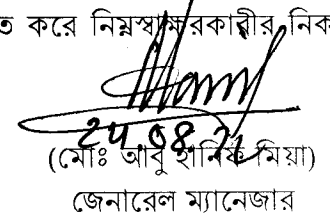 ত করে নিম্নস্বাক্ষরকারীর নিক
(মোঃ আবু হানিফ মিয়া)
জেনারেল ম্যানেজার